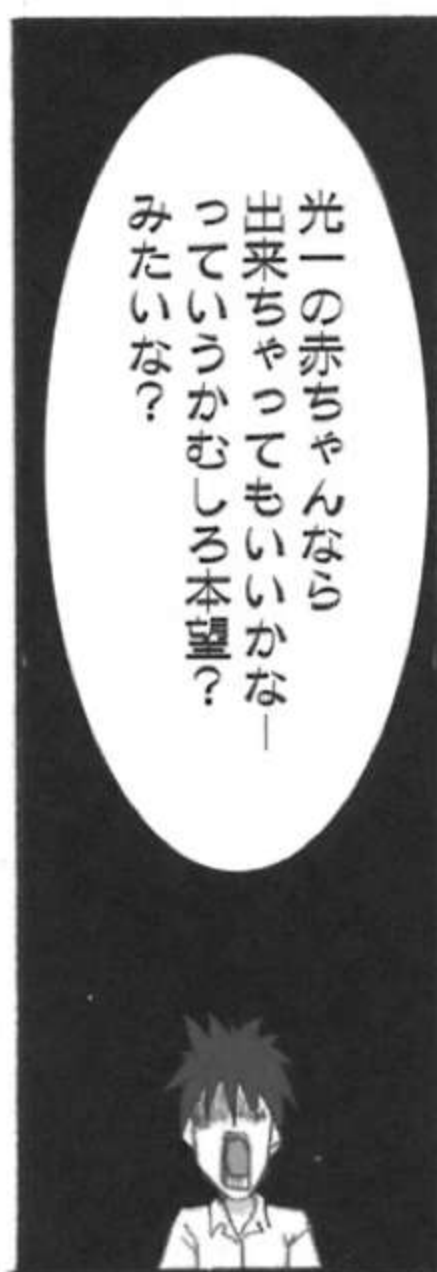 光一の赤ちゃんなら
出来ちゃってもいいかなー
っていうかむしろ本望？
みたいな？